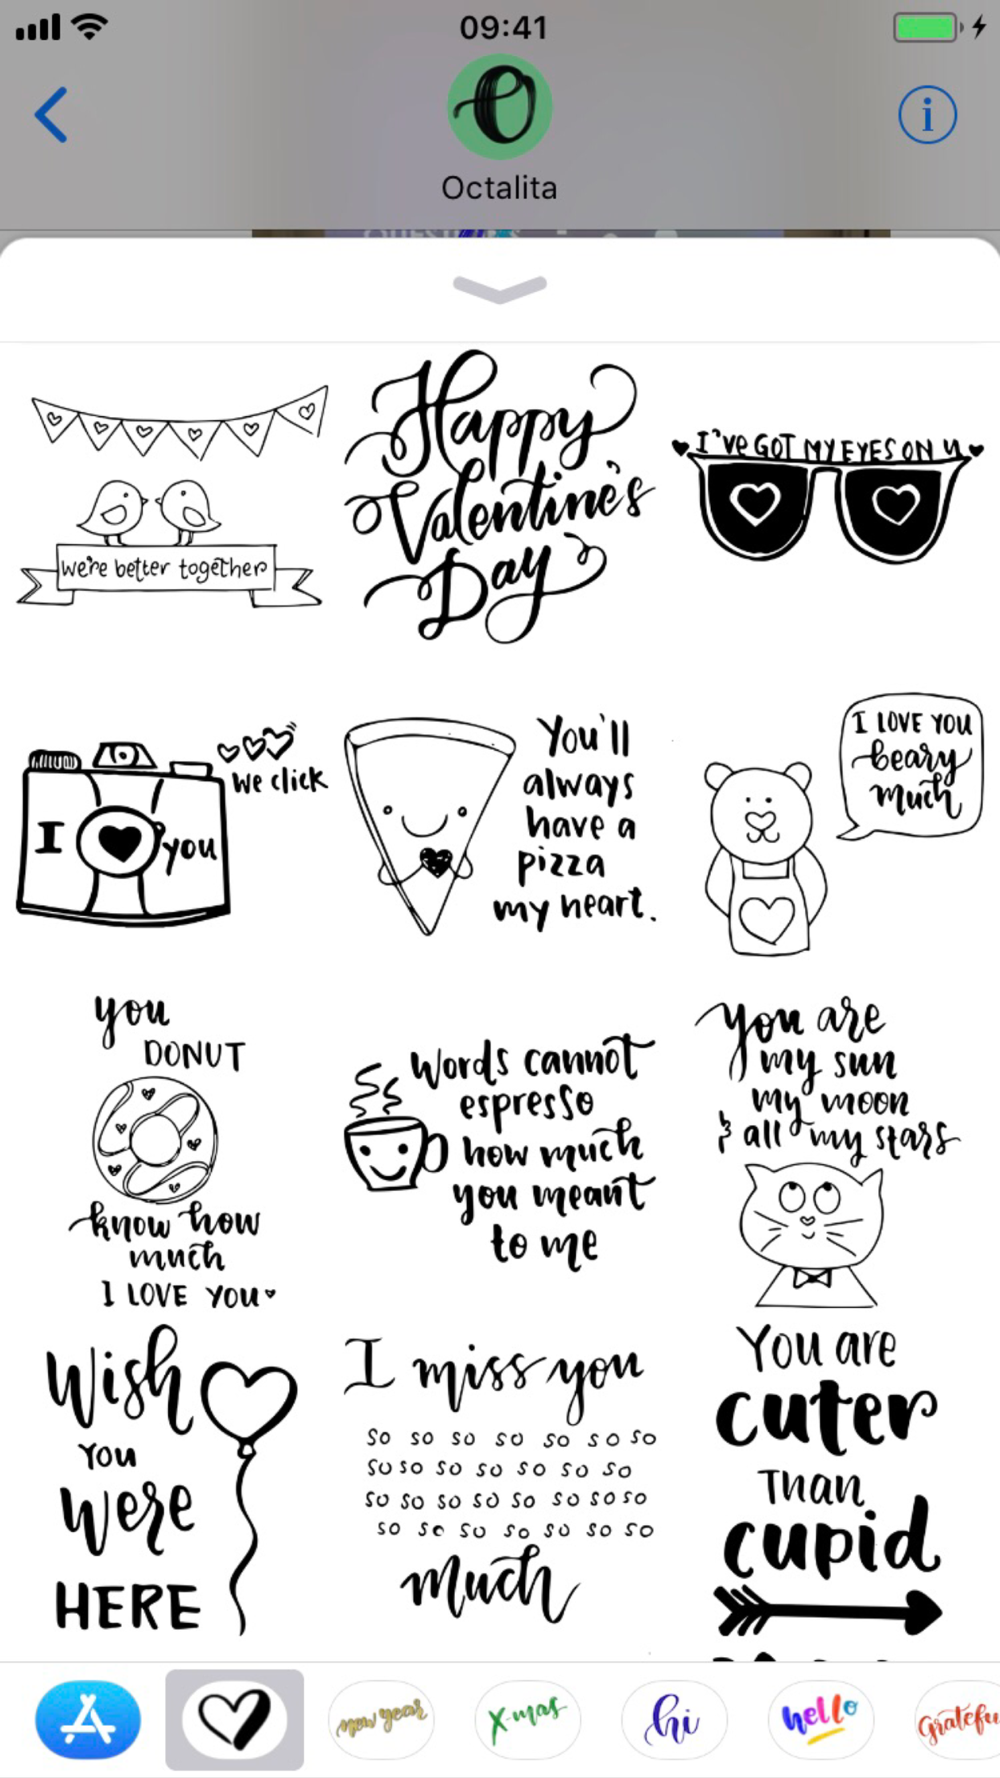 09:41
Octalita
we're better together
Happy
Valentine's
Day
I've GOT MY EYES ON U
I you
We click
You'll
always
have a
pizza
my heart.
I LOVE YOU
beary
much
you
DONUT
know how
much
I LOVE YOU
Words cannot
espresso
how much
you meant
to me
You are
my sun
my moon
& all my stars
Wish
You
Were
HERE
I miss you
so so so so so so so
so so so so so so so
so so so so so so so so
so so so so so so so
much
You are
cuter
Than
cupid
new year
X-mas
hi
hello